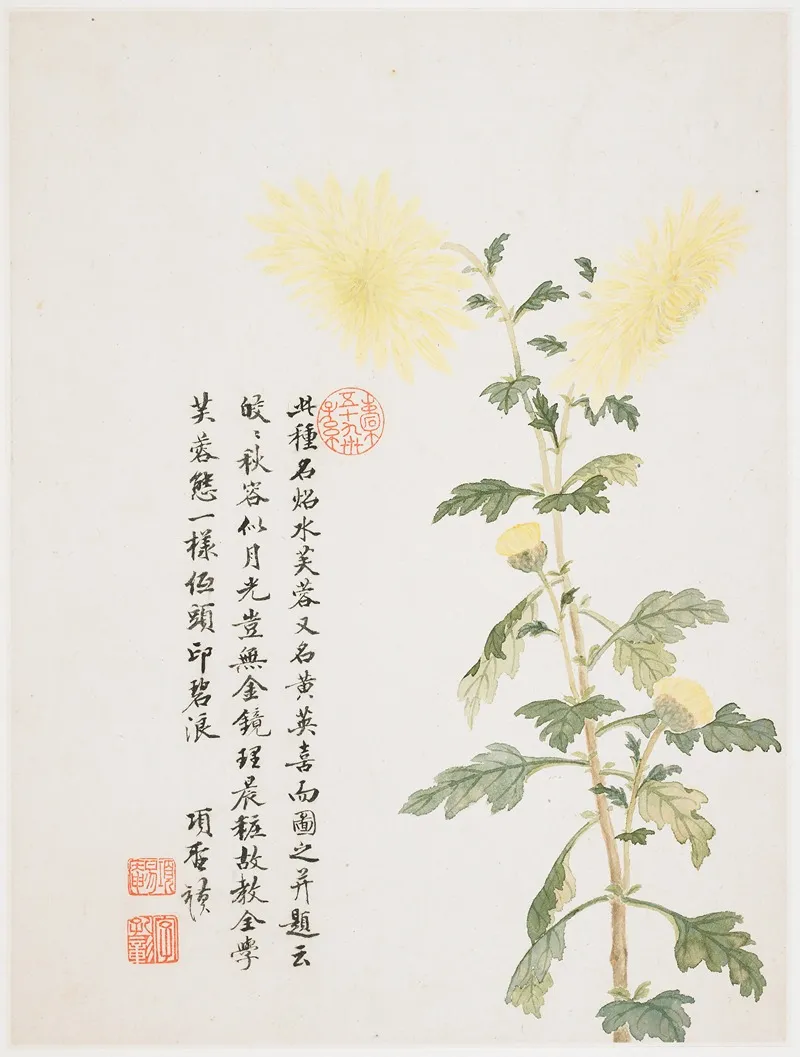 此種名炤水芙蓉又名黄英喜而圖之并題云
皎〻秋容似月光豈無金鏡理晨糚故教全學
芙蓉態一樣低頭印碧浪
項聖謨
字孔彰